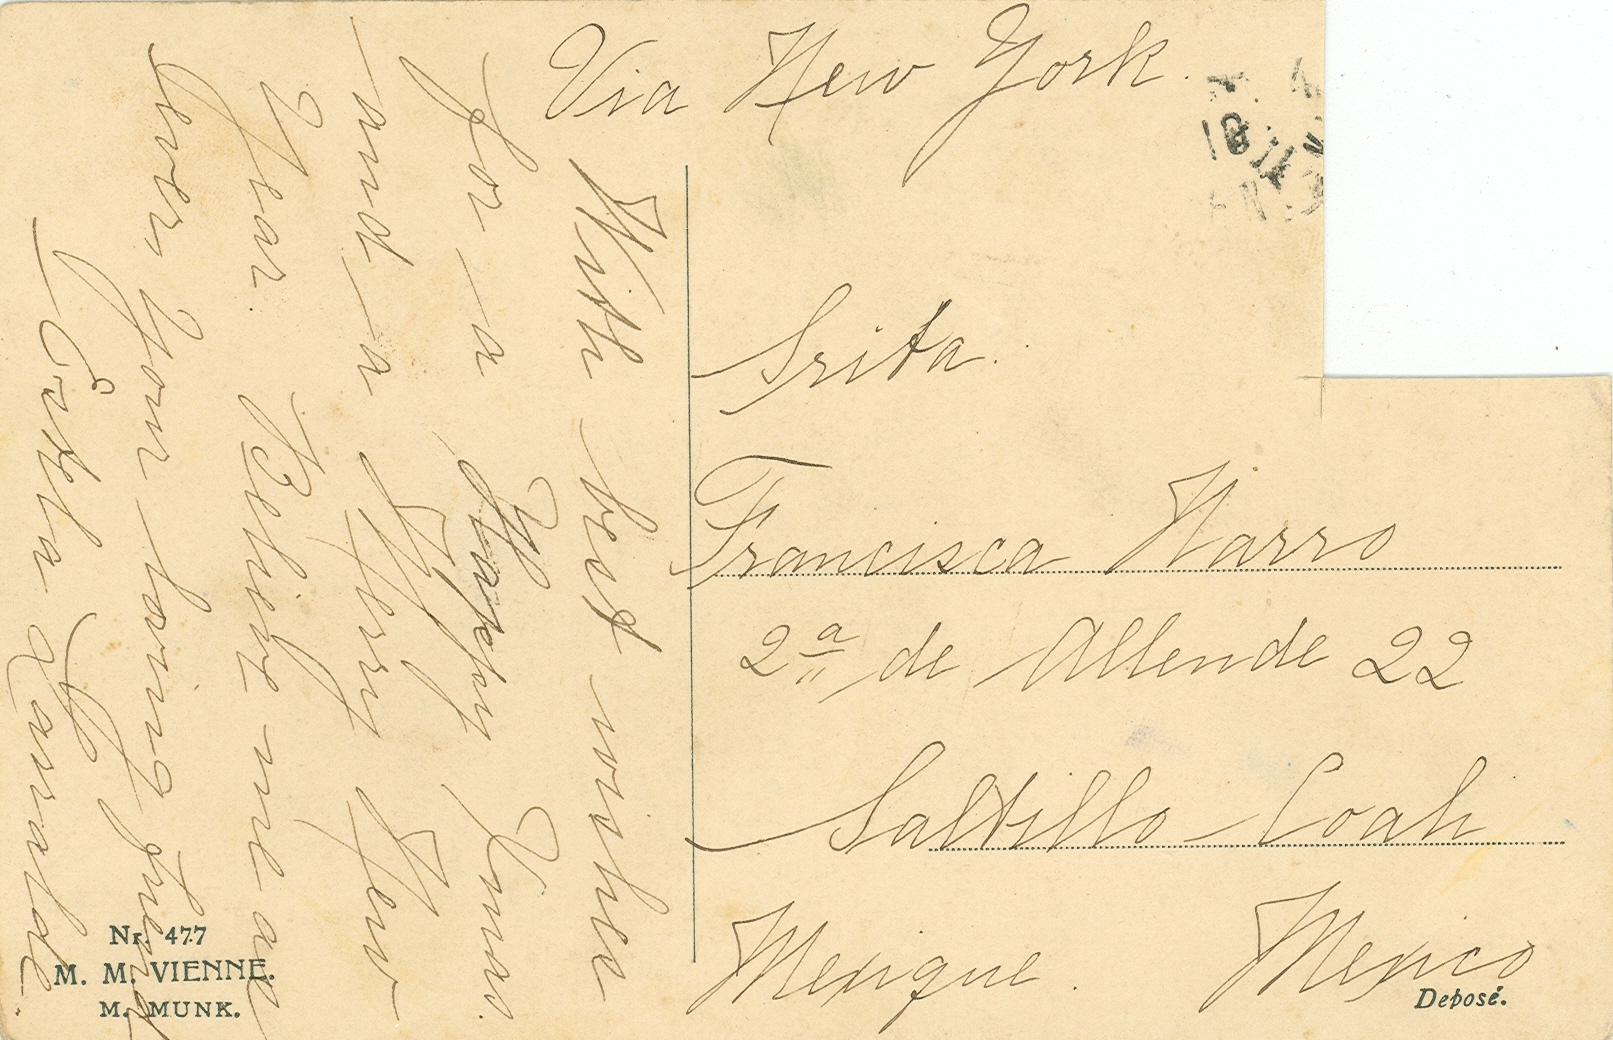 Via New York.
With best wishes
for a Happy Xmas.
and a Merry New
Year. Believe me as
ever, Your loving friend
Estela Larralde.
Srita.
Francisca Narro
2ª de Allende 22
Saltillo Coah
Mexique. Mexico
Nr. 477
M. M. VIENNE.
M. MUNK.
Deposé.